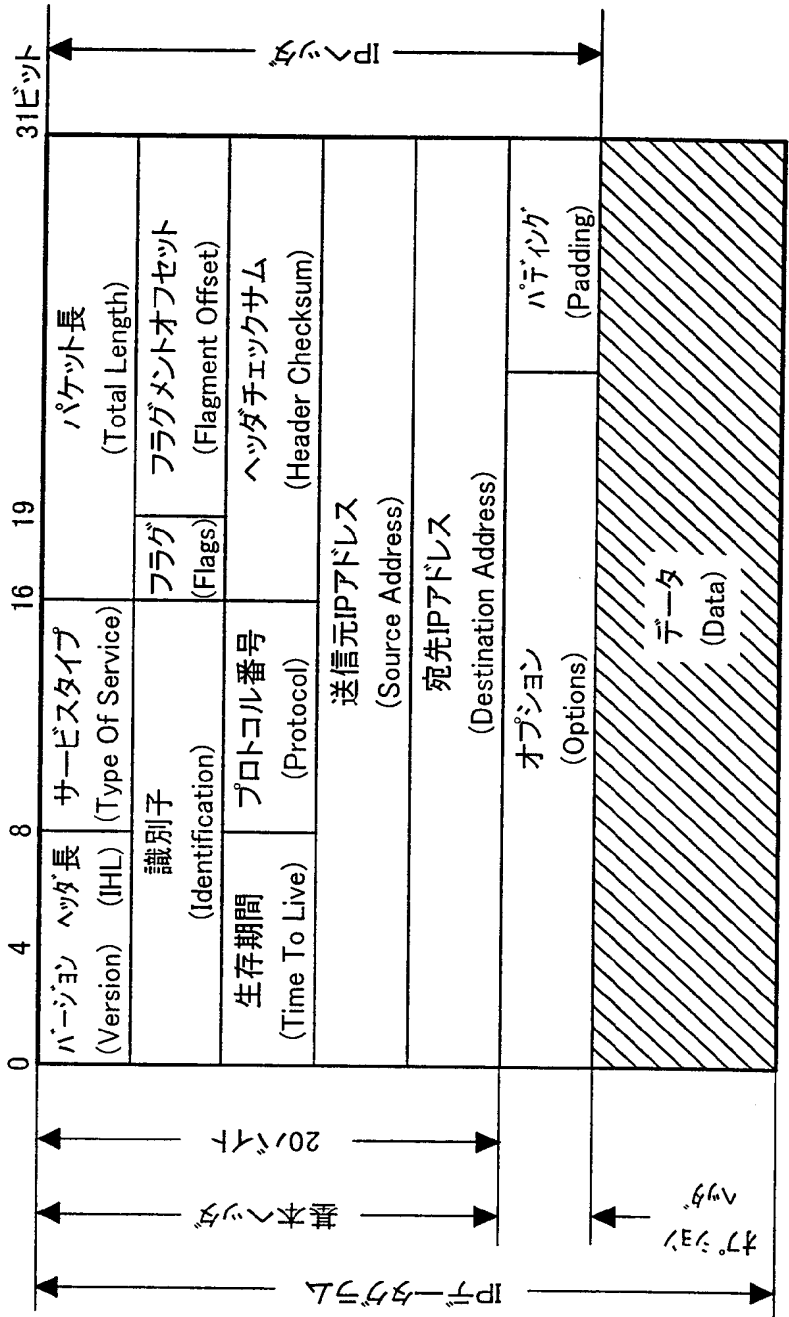 0
4
8
16
19
31ビット
バージョン
(Version)
ヘッダ長
(IHL)
サービスタイプ
(Type Of Service)
パケット長
(Total Length)
識別子
(Identification)
フラグ
(Flags)
フラグメントオフセット
(Flagment Offset)
生存期間
(Time To Live)
プロトコル番号
(Protocol)
ヘッダチェックサム
(Header Checksum)
送信元IPアドレス
(Source Address)
宛先IPアドレス
(Destination Address)
オプション
(Options)
パディング
(Padding)
データ
(Data)
20バイト
基本ヘッダ
オプション
ヘッダ
IPデータグラム
IPヘッダ